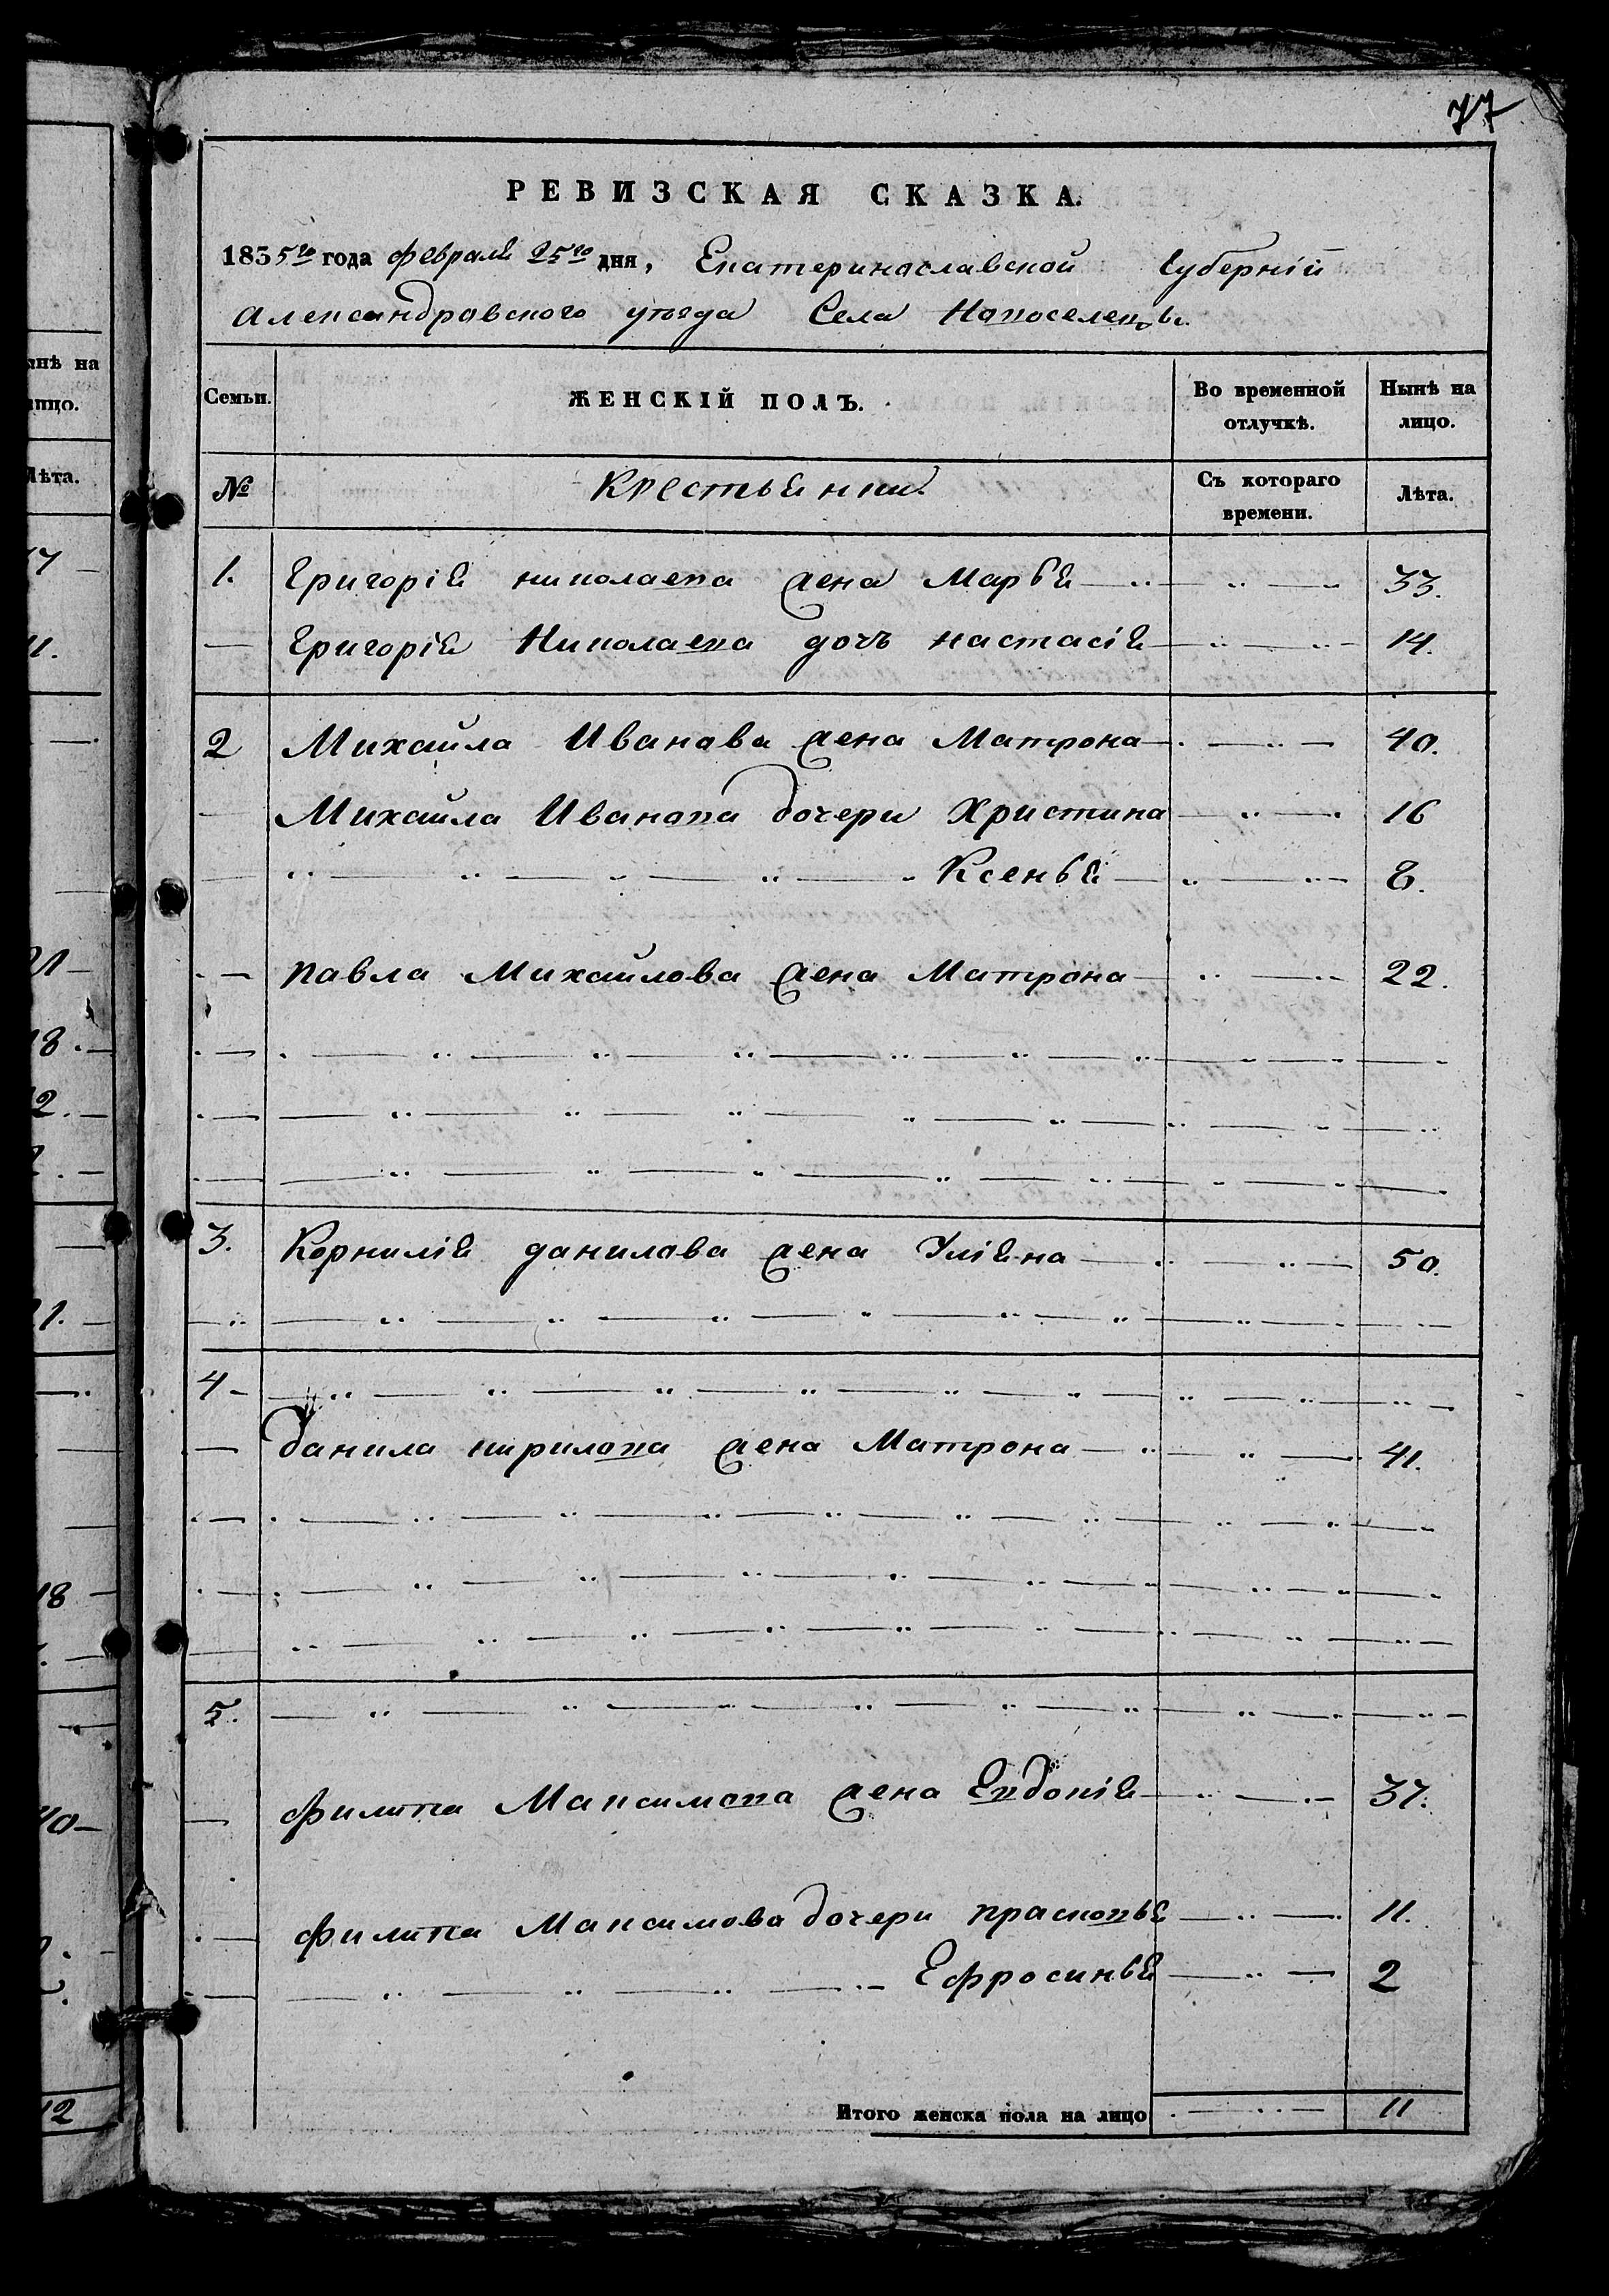 77
РЕВИЗСКАЯ СКАЗКА.
1835 5го года февраля 25го дня, Екатеринославской губернiи
Александровского уезда Села Новоселовк.
Семьи. ЖЕНСКІЙ ПОЛЪ. Во временной отлучкѣ. Нынѣ на лицо.
№ Крестьянки. Съ котораго времени. Лѣта.
1. Григорiя николаева жена Марья 33.
Григорiя Николаева дочь настасiя 14.
2 Михайла Иванава жена Матрона 40.
Михайла Иванова дочери Христина 16
Ксенья 8.
павла Михайлова жена Матрона 22.
3. Корнилiя данилава жена Улiяна 50.
4
данила кирилова жена Матрона 41.
5.
филипа Максимова жена Евдокiя 37.
филипа Максимова дочери прасковья 11.
Ефросинья 2
Итого женска пола на лицо 11
ынѣ на
лицо.
Лѣта.
17
11.
21
18.
12.
21.
18
40
12